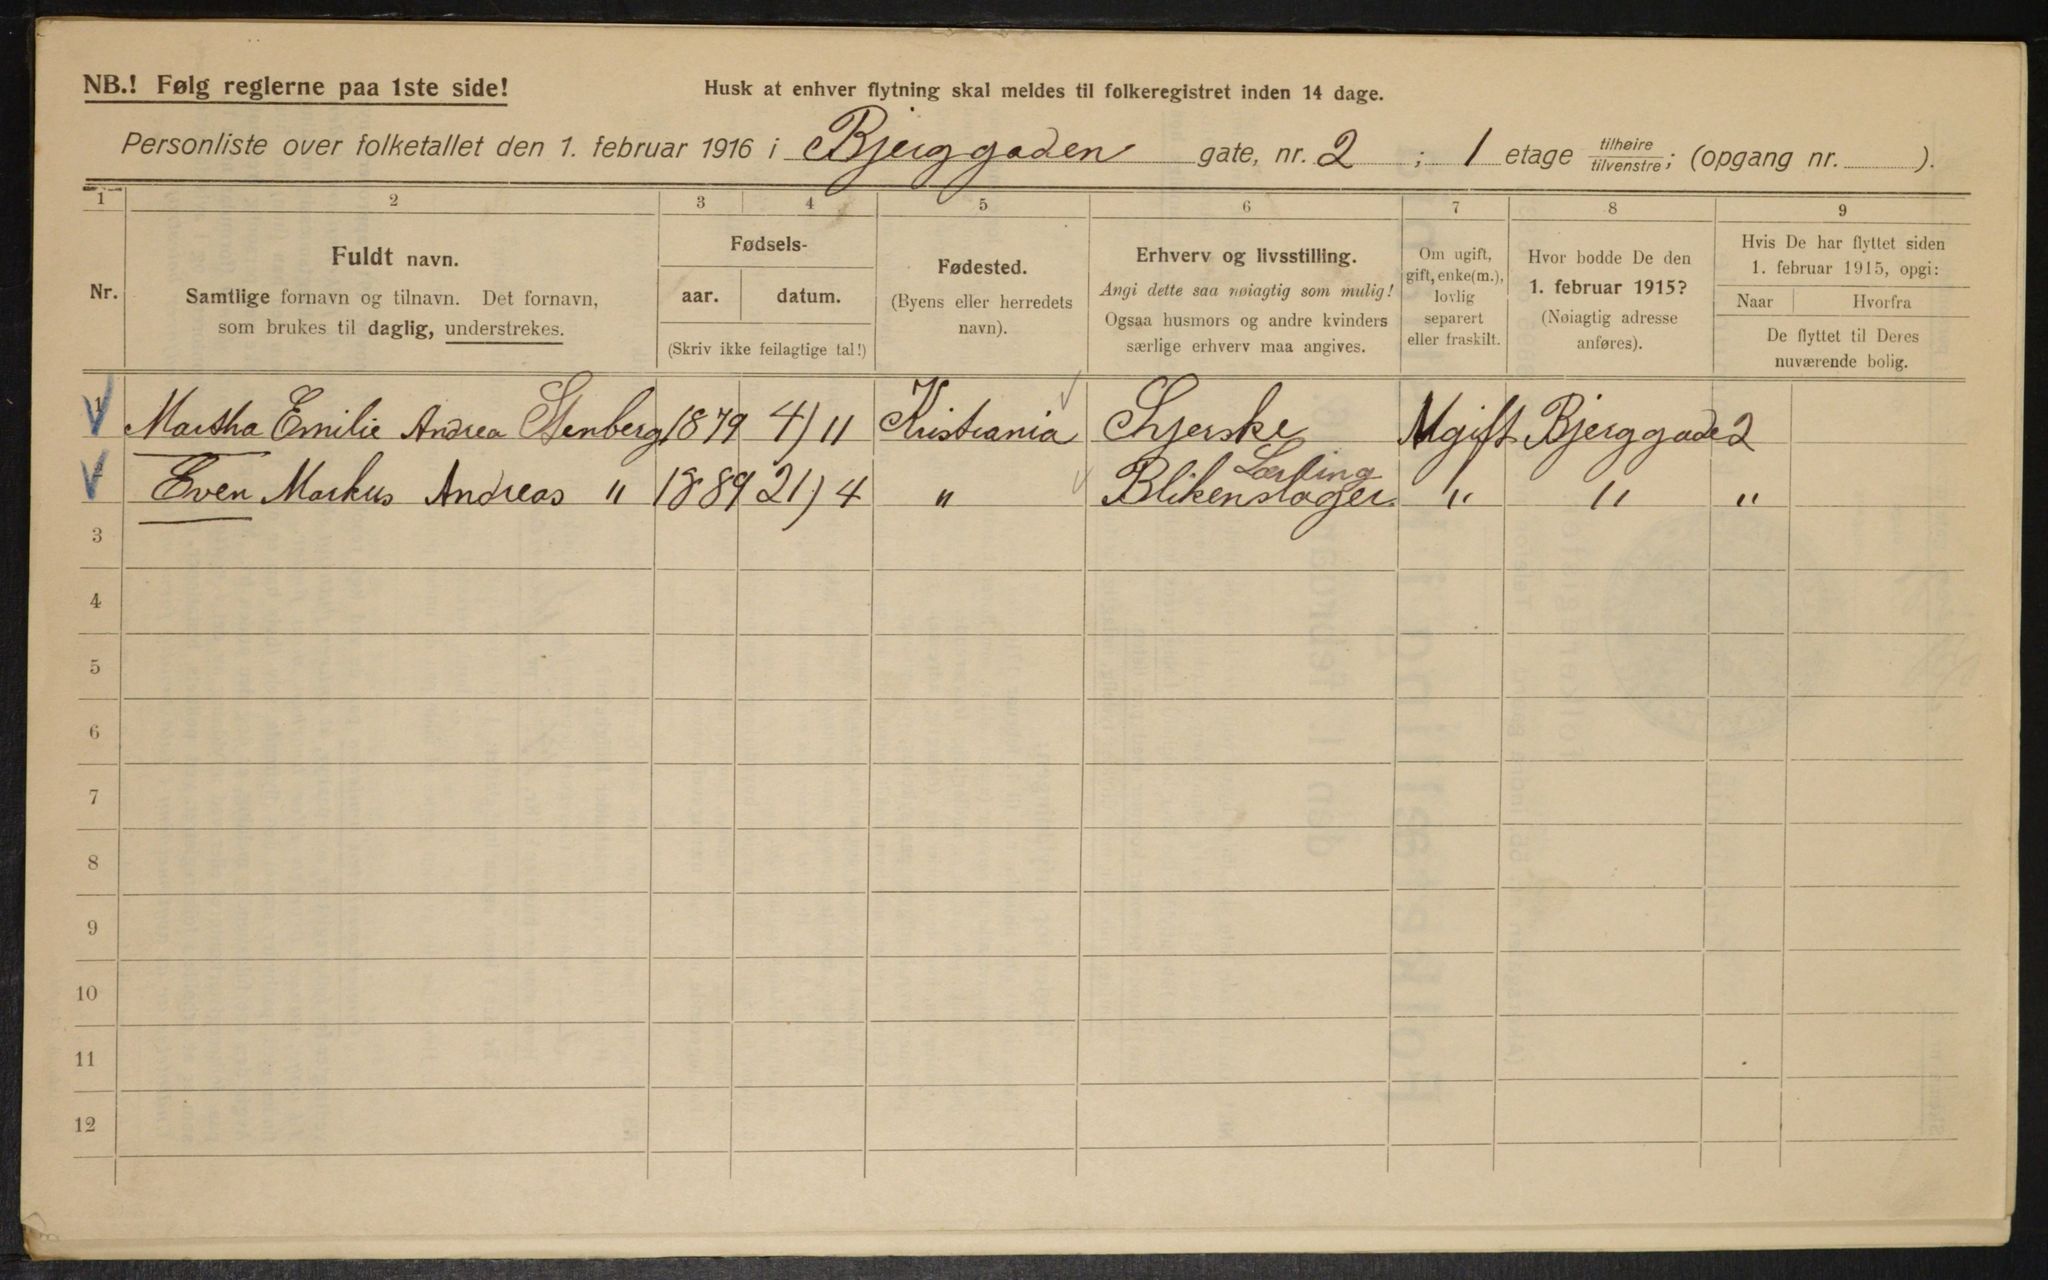 NB.! Følg reglerne paa 1ste side!
Husk at enhver flytning skal meldes til folkeregistret inden 14 dage.
Personliste over folketallet den 1. februar 1916 i Bjerggaden gate, nr. 2 ; 1 etage tilhøire/tilvenstre; (opgang nr. ).
1 2 3 4 5 6 7 8 9
Nr.
Fuldt navn.
Samtlige fornavn og tilnavn. Det fornavn,
som brukes til daglig, understrekes.
Fødsels-
aar. datum.
(Skriv ikke feilagtige tal!)
Fødested.
(Byens eller herredets
navn).
Erhverv og livsstilling.
Angi dette saa nøiagtig som mulig!
Ogsaa husmors og andre kvinders
særlige erhverv maa angives.
Om ugift,
gift, enke(m.),
lovlig
separert
eller fraskilt.
Hvor bodde De den
1. februar 1915?
(Nøiagtig adresse
anføres).
Hvis De har flyttet siden
1. februar 1915, opgi:
Naar Hvorfra
De flyttet til Deres
nuværende bolig.
1 Martha Emilie Andrea Stenberg 1879 4/11 Kristiania Syerske Ugift Bjerggade 2
Lærling
Even Markus Andreas " 1889 21/4 " Blikenslager " " "
3
4
5
6
7
8
9
10
11
12